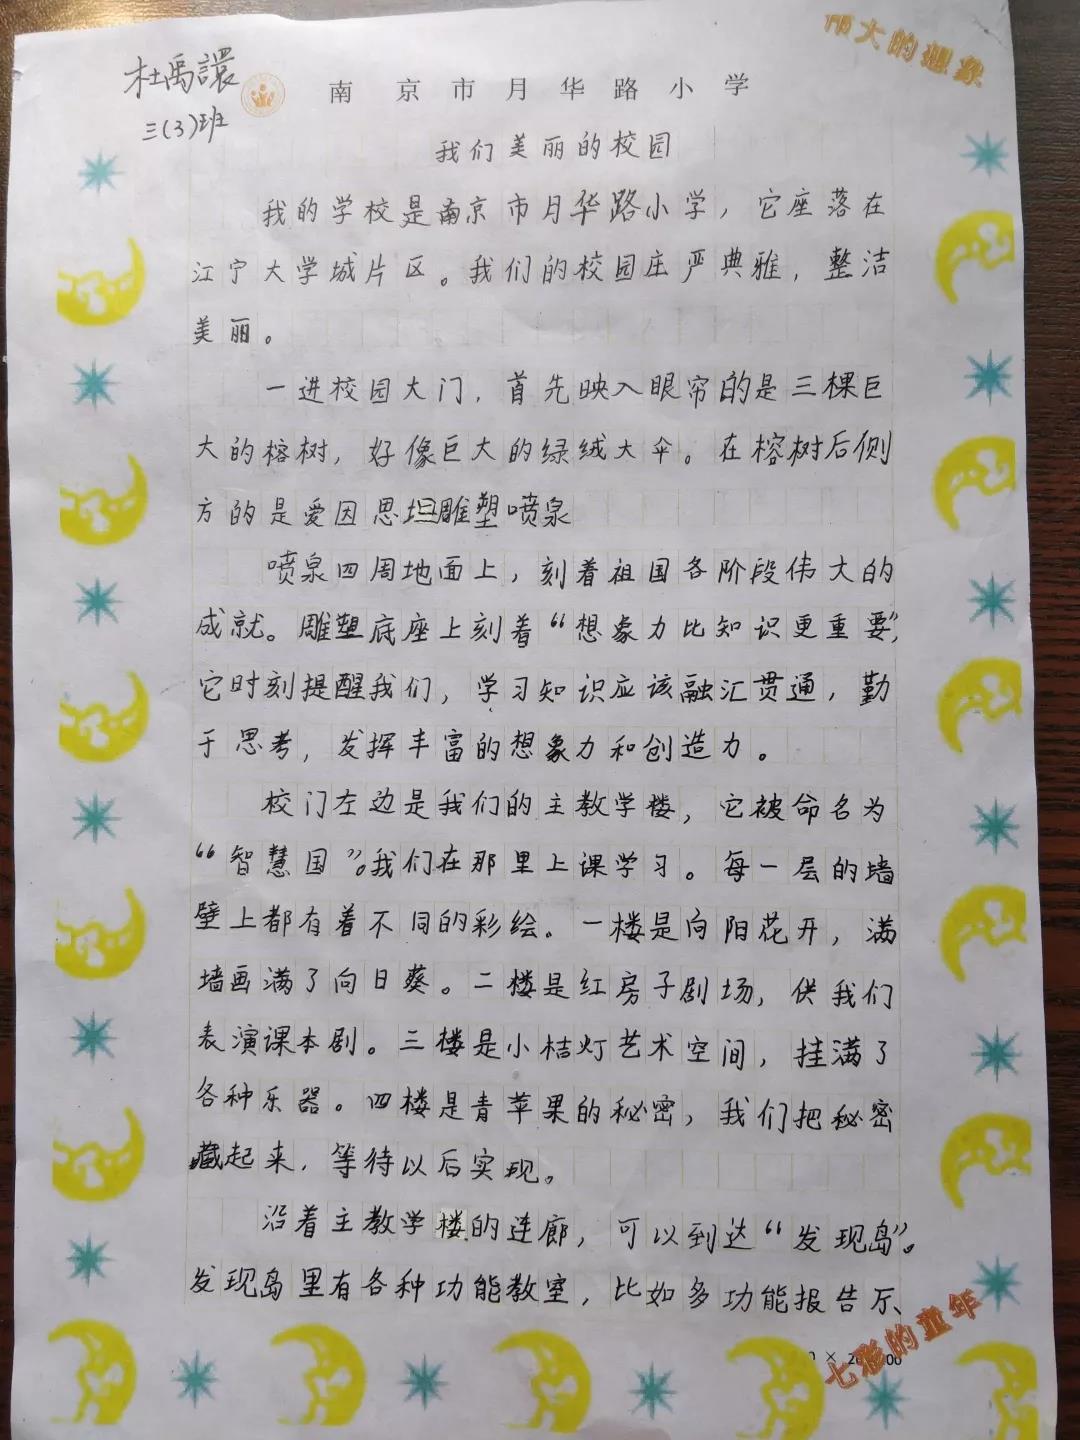 伟大的想象
杜禹譞
三(3)班
南京市月华路小学
我们美丽的校园
我的学校是南京市月华路小学，它座落在
江宁大学城片区。我们的校园庄严典雅，整洁
美丽。
一进校园大门，首先映入眼帘的是三棵巨
大的榕树，好像巨大的绿绒大伞。在榕树后侧
方的是爱因思坦雕塑喷泉
喷泉四周地面上，刻着祖国各阶段伟大的
成就。雕塑底座上刻着“想象力比知识更重要”，
它时刻提醒我们，学习知识应该融汇贯通，勤
于思考，发挥丰富的想象力和创造力。
校门左边是我们的主教学楼，它被命名为
“智慧国”。我们在那里上课学习。每一层的墙
壁上都有着不同的彩绘。一楼是向阳花开，满
墙画满了向日葵。二楼是红房子剧场，供我们
表演课本剧。三楼是小桔灯艺术空间，挂满了
各种乐器。四楼是青苹果的秘密，我们把秘密
藏起来，等待以后实现。
沿着主教学楼的连廊，可以到达“发现岛”。
发现岛里有各种功能教室，比如多功能报告厅、
七彩的童年